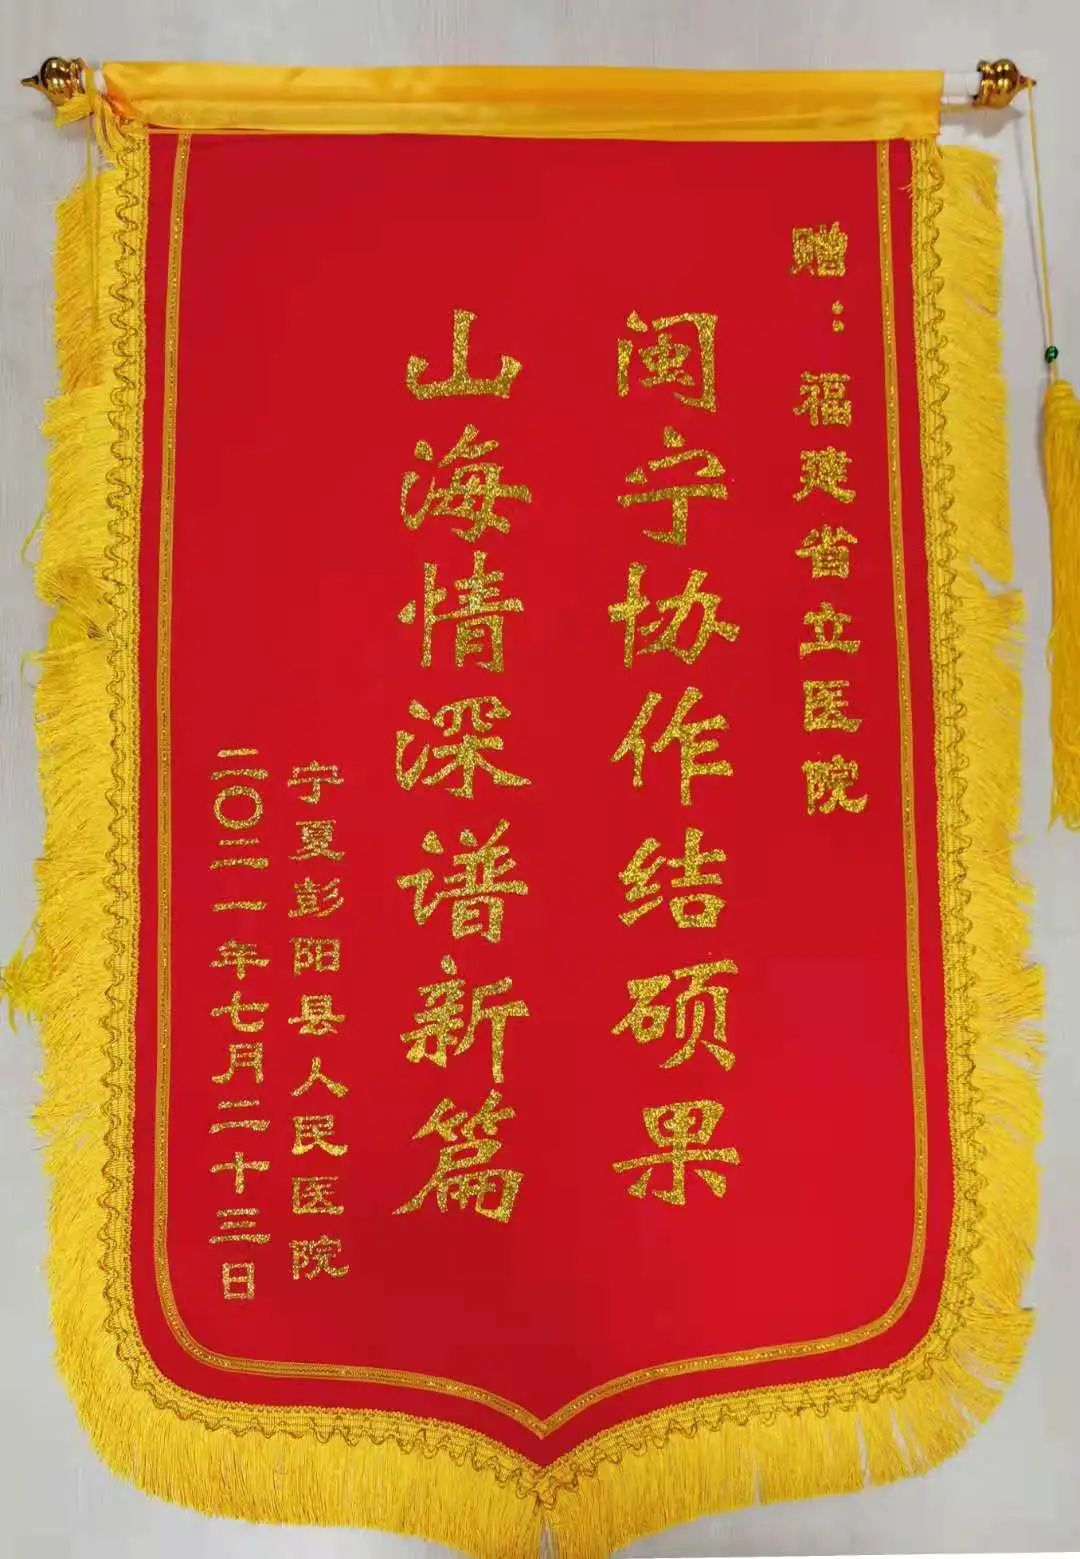 赠：福建省立医院
闽宁协作结硕果
山海情深谱新篇
宁夏彭阳县人民医院
二〇二一年七月二十三日